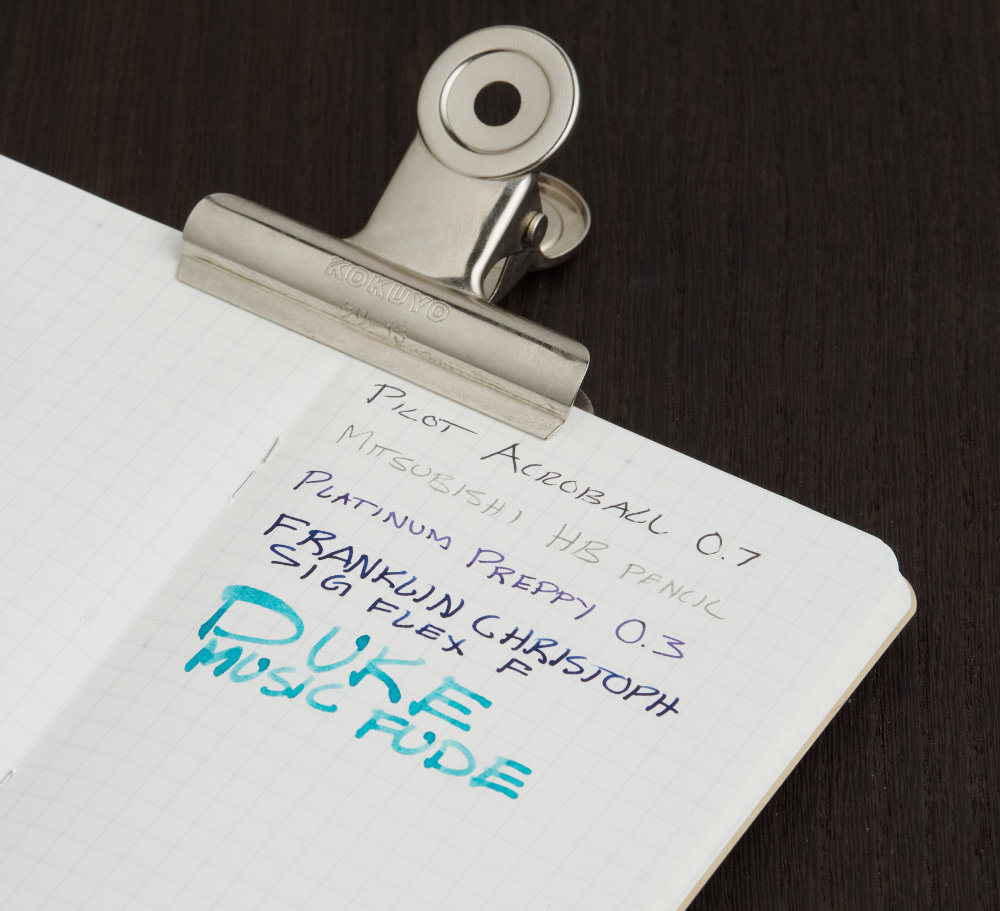 KOKUYO
PILOT ACROBALL 0.7
MITSUBISHI HB PENCIL
PLATINUM PREPPY 0.3
FRANKLIN CHRISTOPH
SIG FLEX F
DUKE
MUSIC FUDE